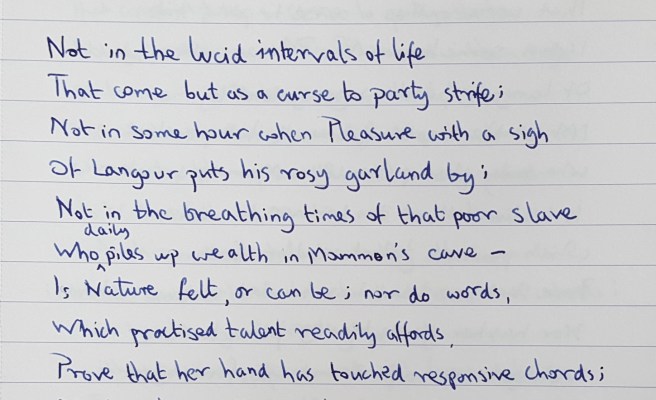 Not in the lucid intervals of life
That come but as a curse to party strife;
Not in some hour when Pleasure with a sigh
Of Langour puts his rosy garland by;
Not in the breathing times of that poor slave
Who daily piles up wealth in Mammon's cave –
Is Nature felt, or can be; nor do words,
Which practised talent readily affords,
Prove that her hand has touched responsive chords;